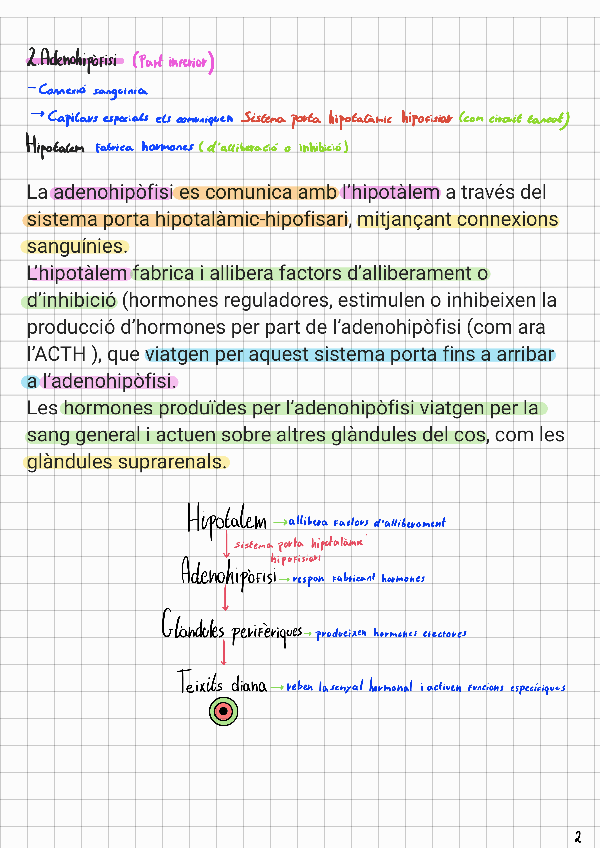 2. Adenohipòfisi (Part inferior)
- Connexió sanguínia
→ Capilars especials els comuniquen Sistema porta hipotalàmic hipofisiar (com circuit tancat)
Hipotalem fabrica hormones (d'alliberació o inhibició)
La adenohipòfisi es comunica amb l'hipotàlem a través del
sistema porta hipotalàmic-hipofisari, mitjançant connexions
sanguínies.
L'hipotàlem fabrica i allibera factors d'alliberament o
d'inhibició (hormones reguladores, estimulen o inhibeixen la
producció d'hormones per part de l'adenohipòfisi (com ara
l'ACTH ), que viatgen per aquest sistema porta fins a arribar
a l'adenohipòfisi.
Les hormones produïdes per l'adenohipòfisi viatgen per la
sang general i actuen sobre altres glàndules del cos, com les
glàndules suprarenals.
Hipotalem → allibera factors d'alliberament
sistema porta hipotalàmic
hipofisiari
Adenohipòfisi → respon fabricant hormones
Glàndules perifèriques → produeixen hormones efectores
Teixits diana → reben la senyal hormonal i activen funcions específiques
2